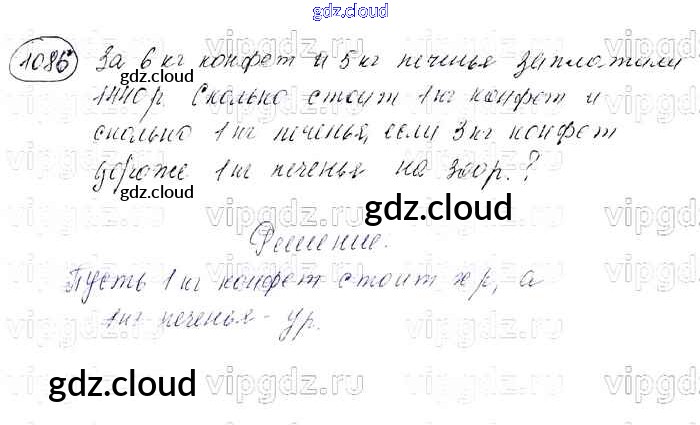 gdz.cloud
1086 За 6 кг конфет и 5 кг печенья заплатили
1440 р. Сколько стоит 1 кг конфет и
сколько 1 кг печенья, если 3 кг конфет
gdz.cloud
дороже 1 кг печенья на 300р.?
gdz.cloud
Решение.
Пусть 1 кг конфет стоит x р, а
1 кг печенья - y р.
gdz.cloud
gdz.cloud
vipgdz.ru